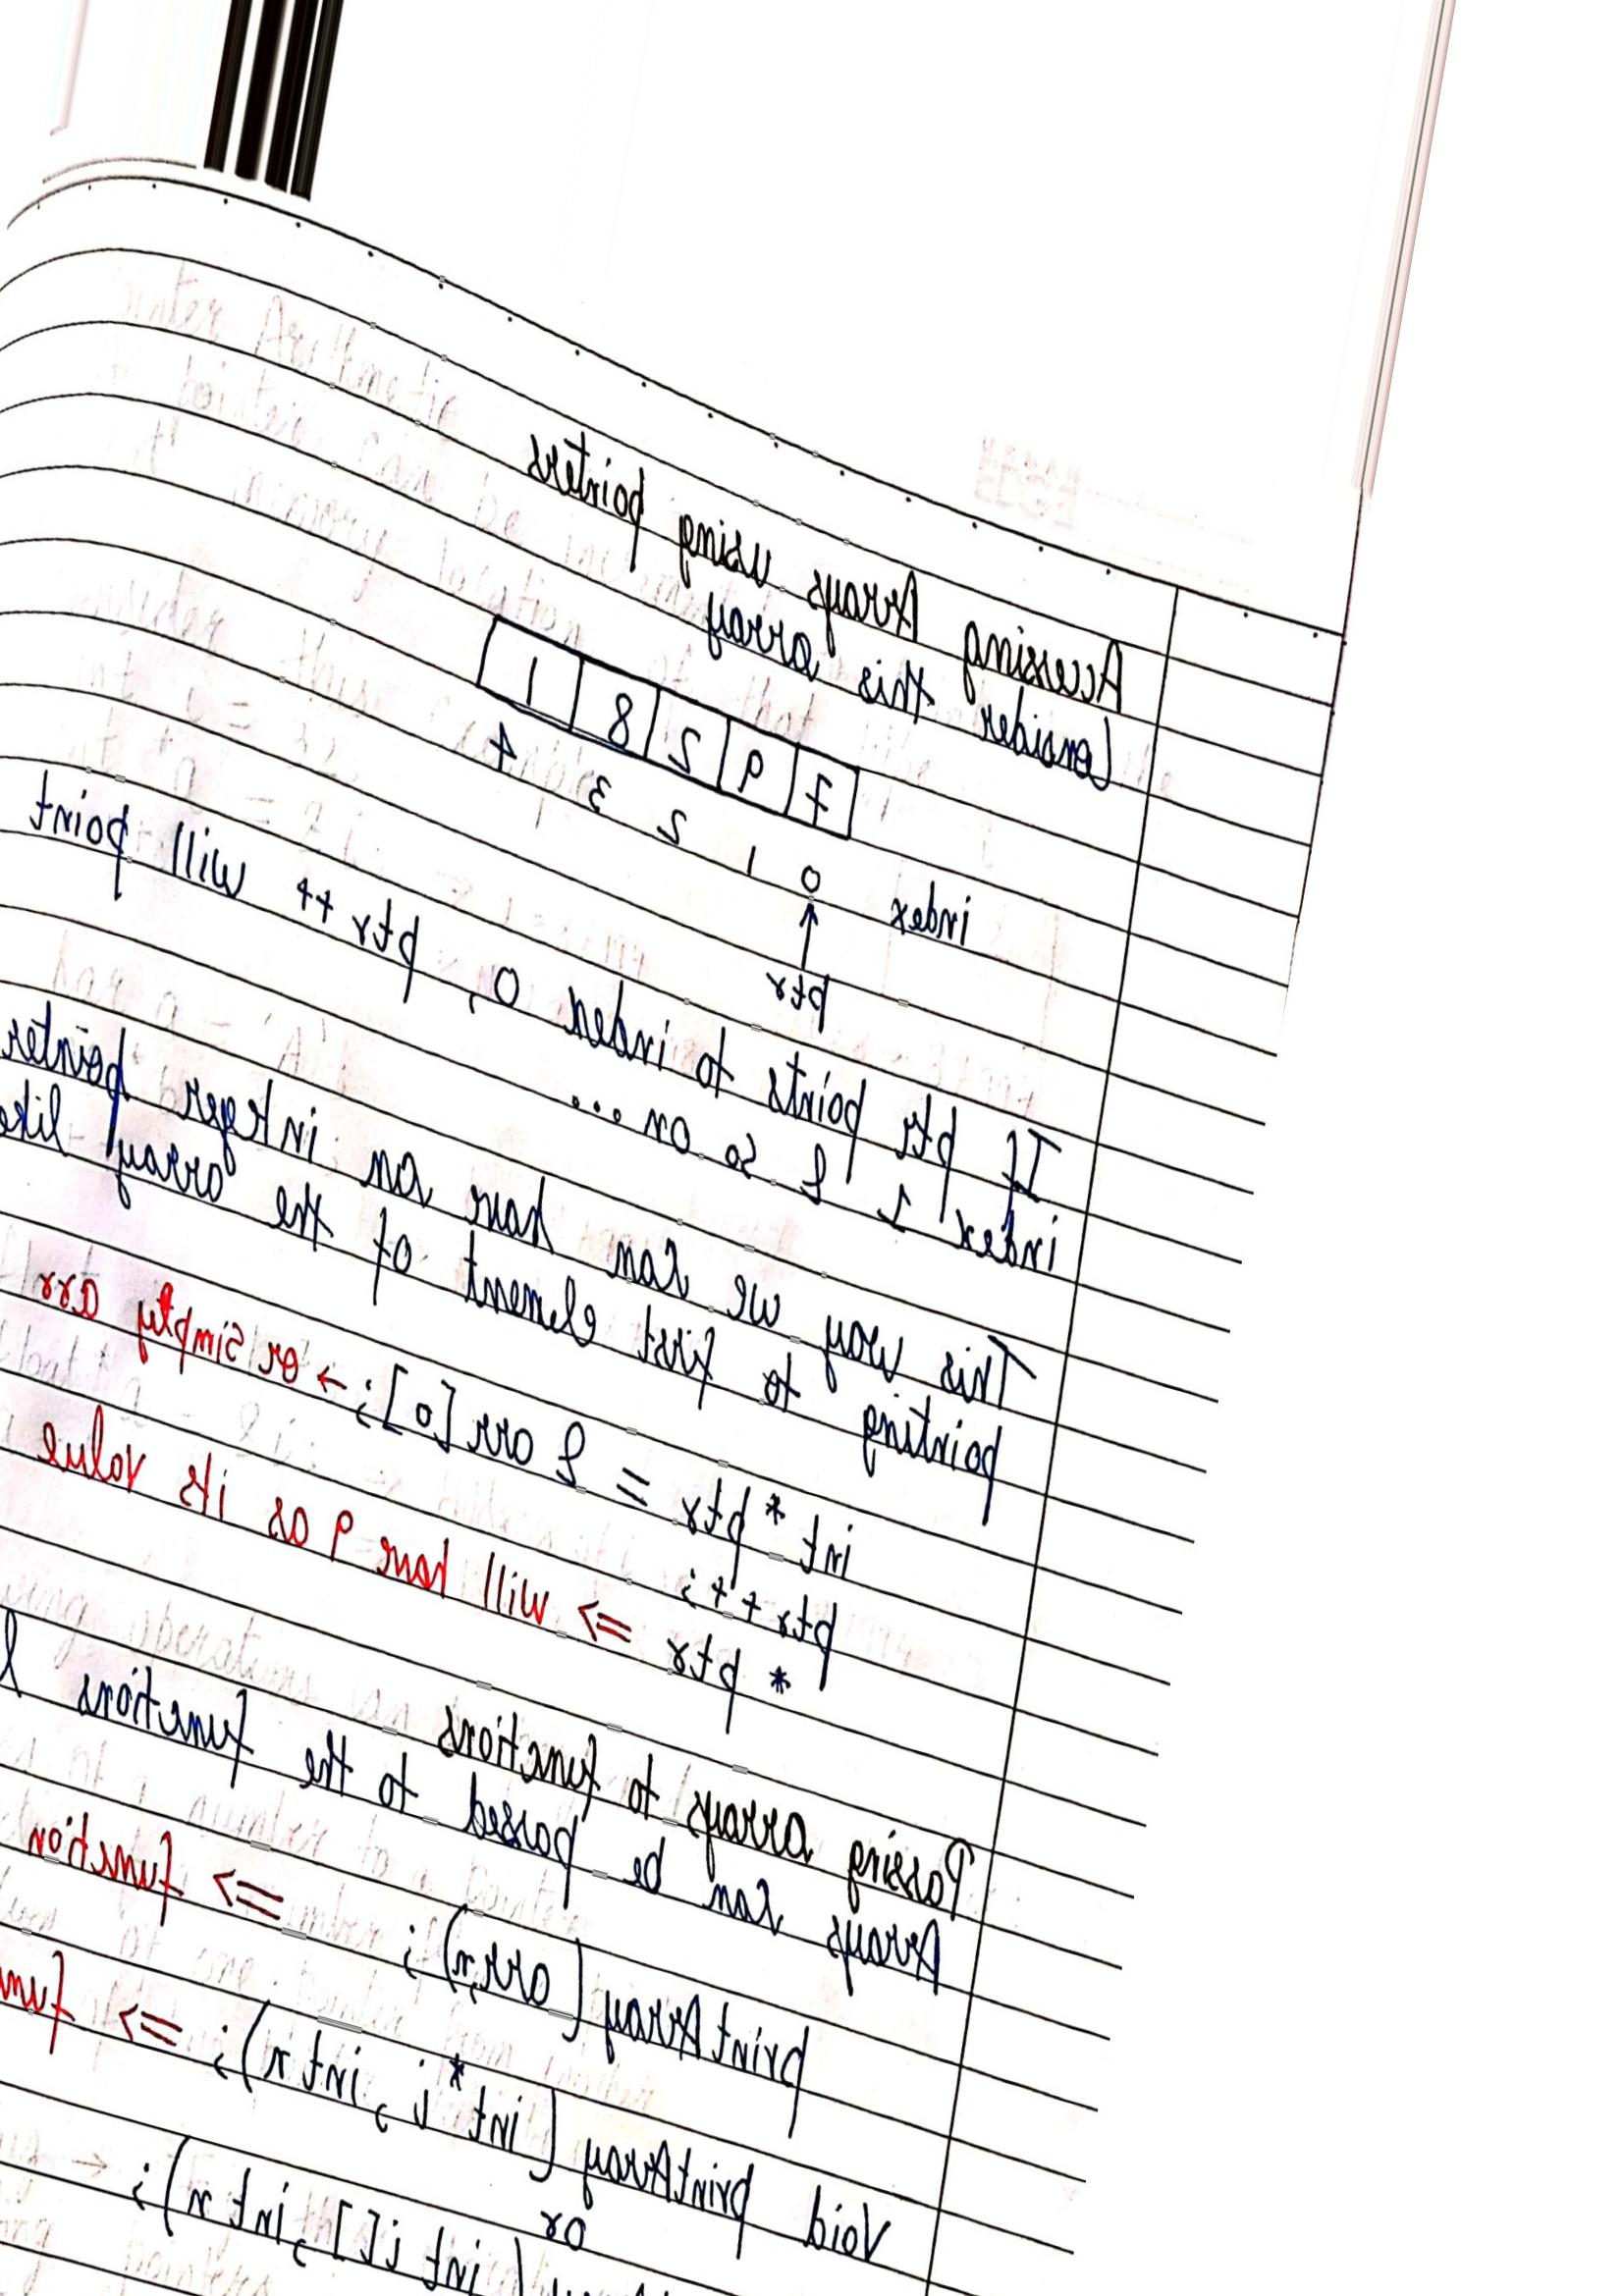 Accessing Arrays using pointers
Consider this array
7 9 2 8 1
index 0 1 2 3 4
ptr
If ptr points to index 0, ptr ++ will point
index 1 & so on ...
This way we can have an integer pointer
pointing to first element of the array like
int * ptr = & arr [0]; → or simply arr
ptr ++;
* ptr => will have 9 as its value
Passing arrays to functions
Arrays can be passed to the functions
printArray (arr, n); => function
Void printArray (int * i, int n); =>
or
(int i[], int n);